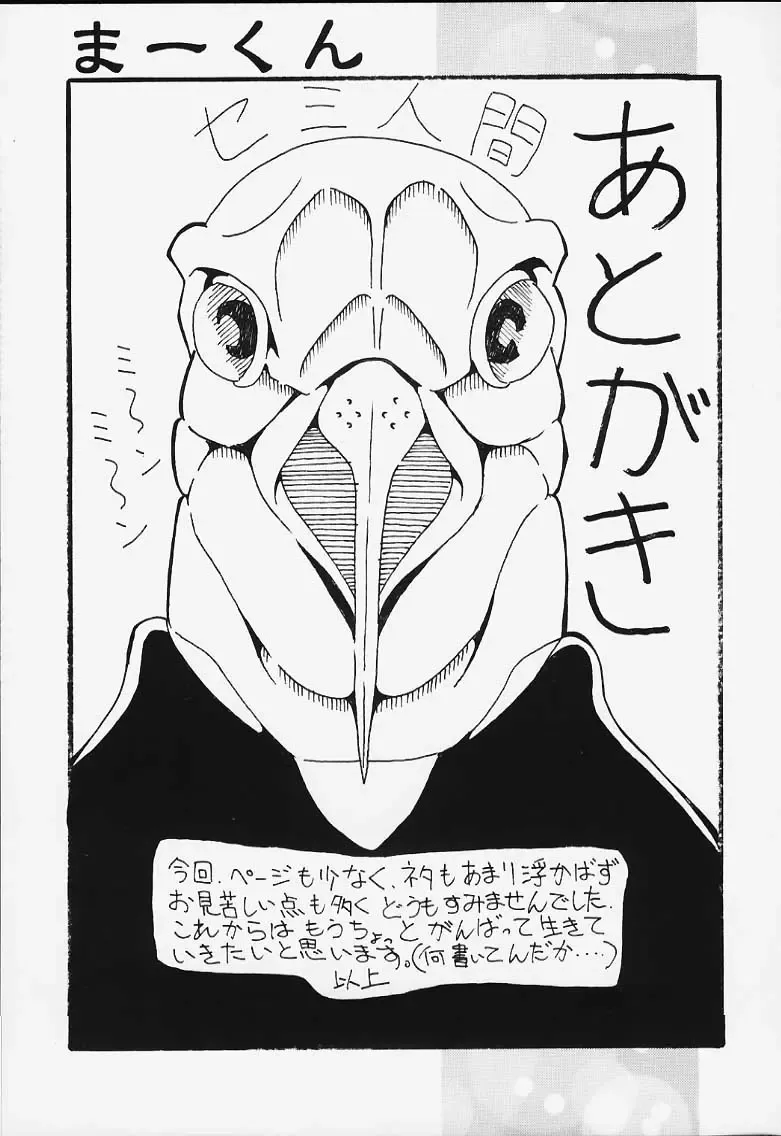 まーくん
セミ人間
あとがき
ミ〜ン
ミ〜ン
今回、ページも少なく、ネタもあまり浮かばず
お見苦しい点も多くどうもすみませんでした.
これからはもうちょっとがんばって生きて
いきたいと思います。(何書いてんだか‥‥)
以上